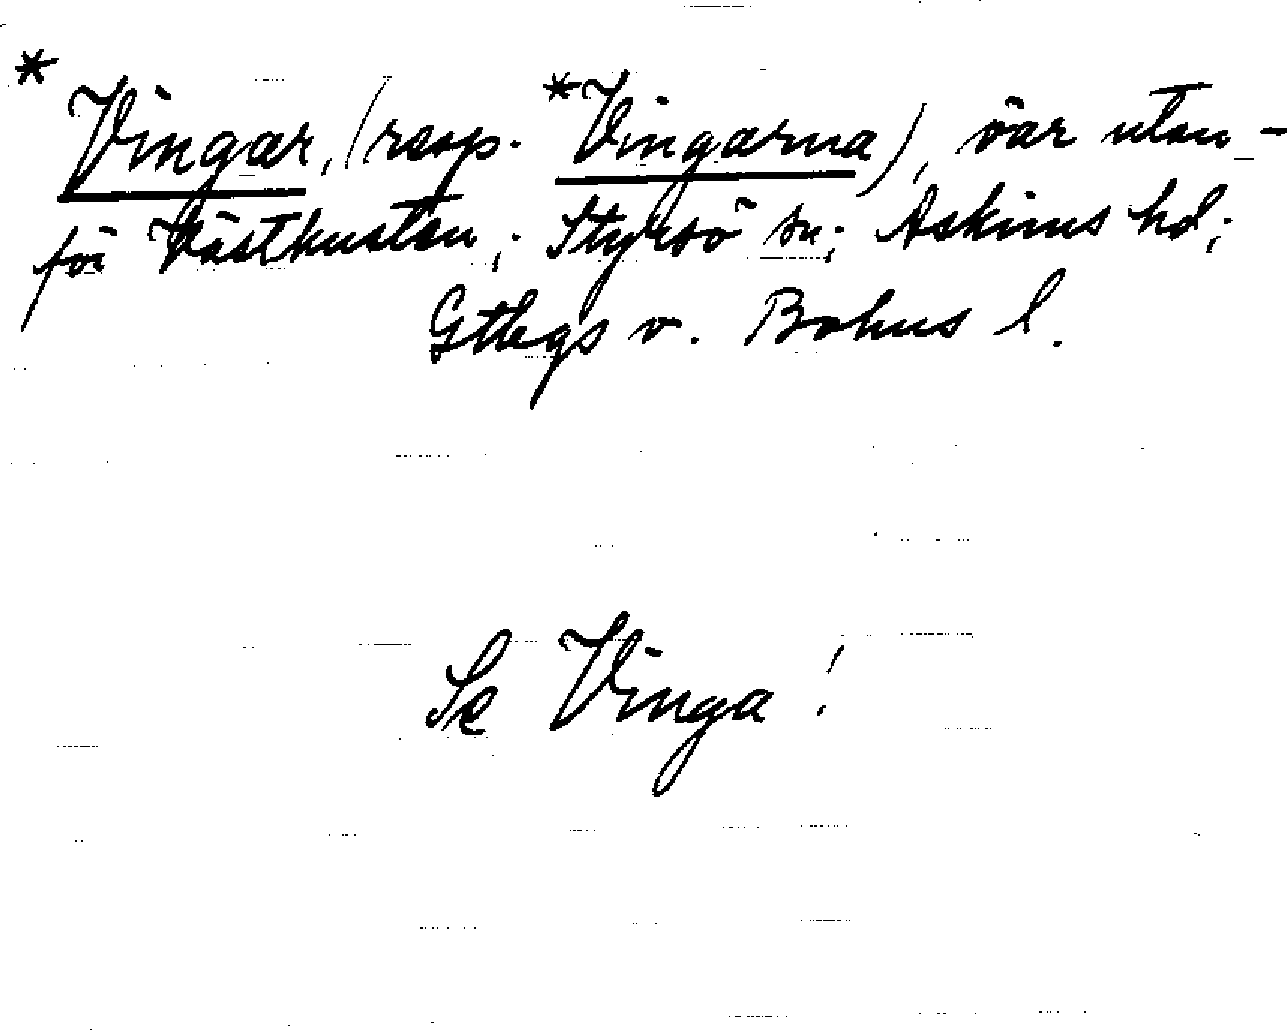 * Vingar, (resp. *Vingarna), öar utan-
för Västkusten; Styrsö sn; Askims hd;
Gtbgs o. Bohus l.
Se Vinga!